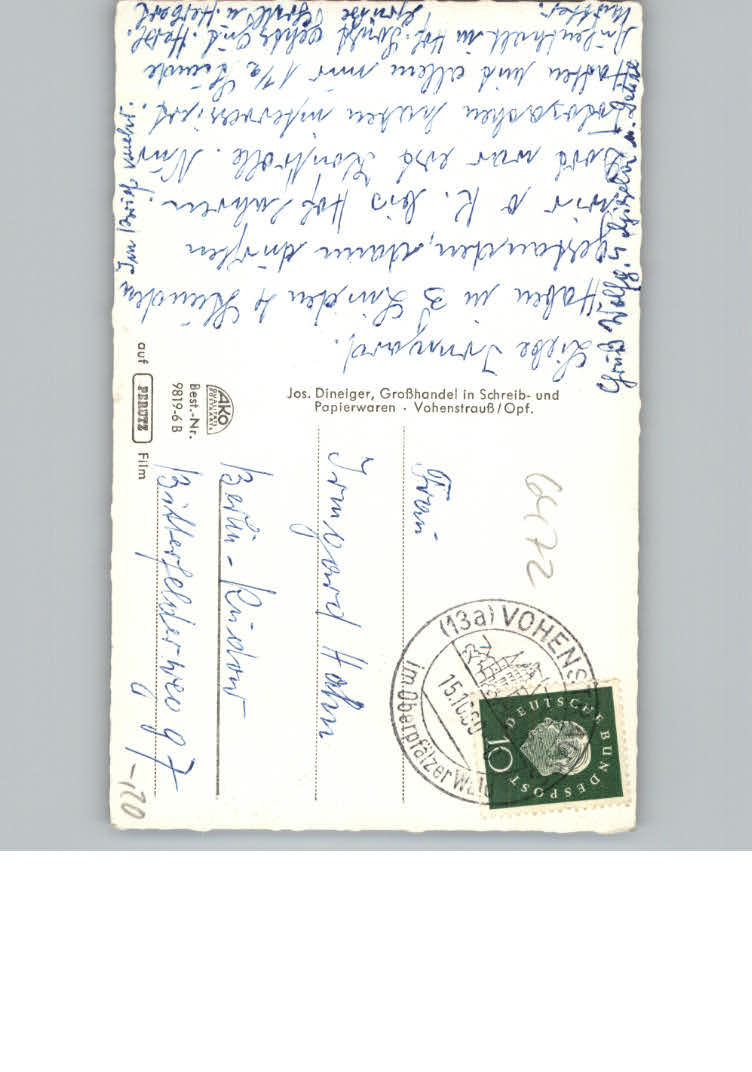 Liebe Irmgard.
Haben in 3 Linden 4 Stunden
gestanden, dann durften
wir o K. bis Hof fahren.
Dort war erst Kontrolle. Nur
haben interessiert.
Hatten mit allem nur 1 1/2 Stunde
Aufenthalt in Hof. Sonst
Grüße
u. Herbert
Mutter.
Im Brief mehr.
Gruß Wolfg.
Jos. Dineiger, Großhandel in Schreib- und
Papierwaren · Vohenstrauß/Opf.
AKO
Best.-Nr.
9819-6 B
auf PERUTZ Film
Frau
Irmgard Hahn
Berlin-Rudow
Bitterfelderweg 97
6472
-,20
(13a) VOHENS
15.10.60
im Oberpfälzer Wald
DEUTSCHE BUNDESPOST
10